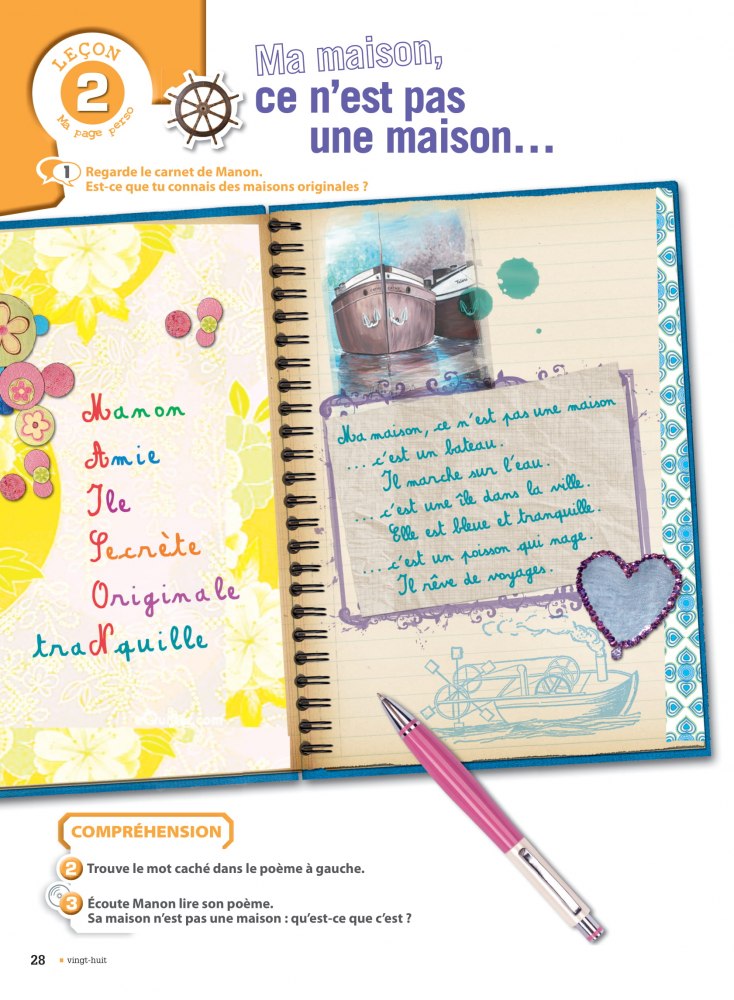 LEÇON
2
Ma page perso
Ma maison,
ce n'est pas
une maison...
1 Regarde le carnet de Manon.
Est-ce que tu connais des maisons originales ?
Manon
Amie
Ile
Secrète
Originale
traNquille
Ma maison, ce n'est pas une maison
...c'est un bateau.
Il marche sur l'eau.
...c'est une île dans la ville.
Elle est bleue et tranquille.
...c'est un poisson qui nage.
Il rêve de voyages.
COMPRÉHENSION
2 Trouve le mot caché dans le poème à gauche.
3 Écoute Manon lire son poème.
Sa maison n'est pas une maison : qu'est-ce que c'est ?
28 • vingt-huit